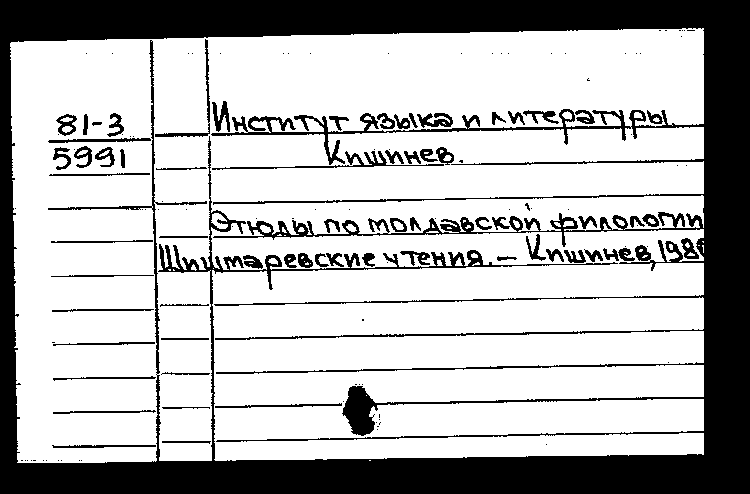 81-3 Институт языка и литературы.
5991 Кишинев.
Этюды по молдавской филологии
Шишмаревские чтения. — Кишинев,